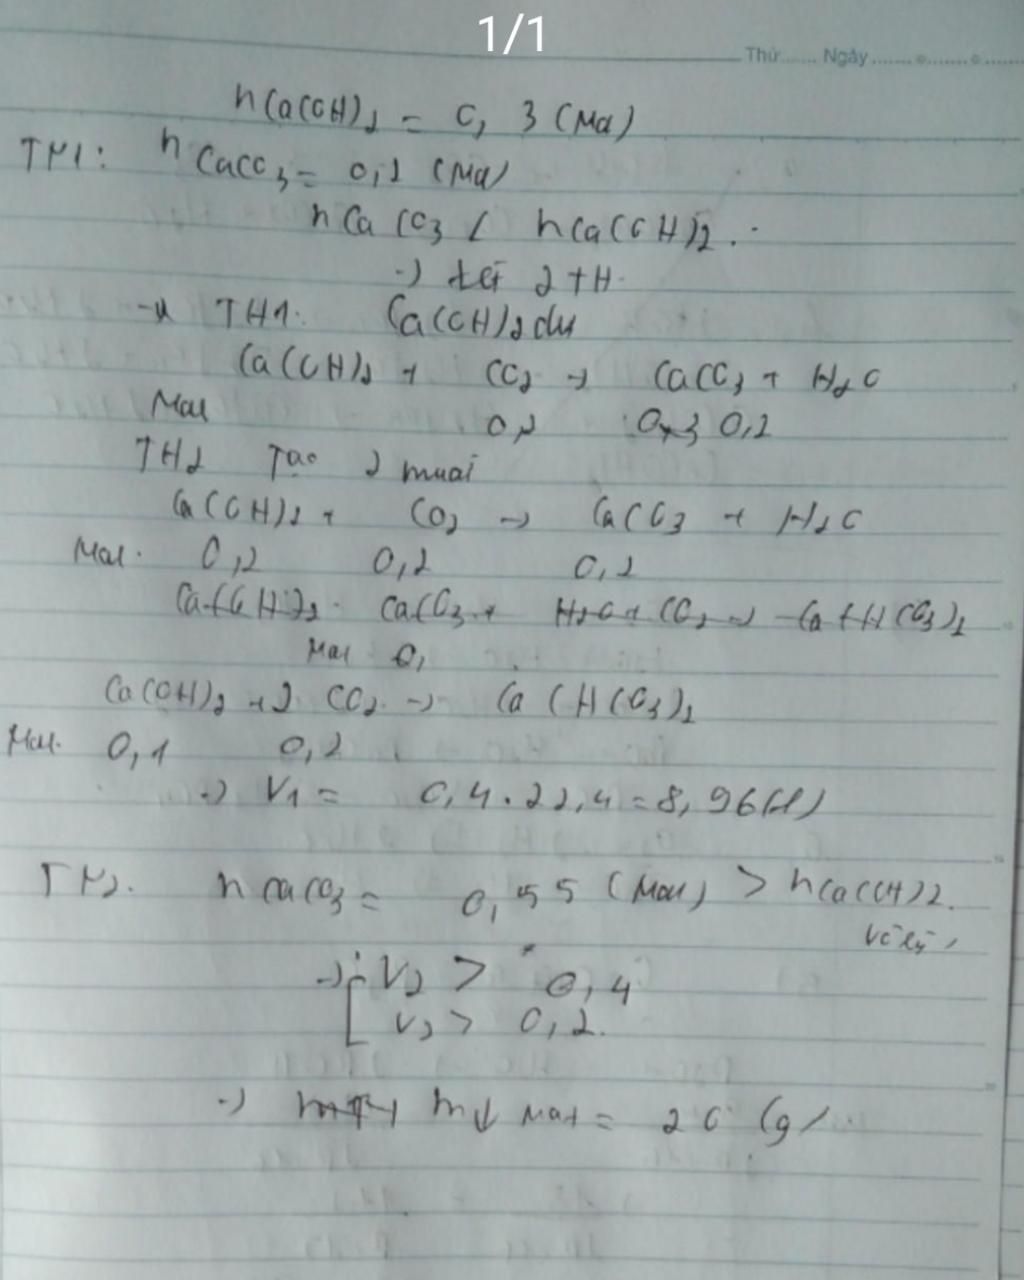 1/1
Thứ....... Ngày
nCa(OH)2 = 0,3 (Mol)
TN1: nCaCO3 = 0,2 (Mol)
nCaCO3 < nCa(OH)2.
-) 2 TH.
TH1: Ca(OH)2 dư
Ca(OH)2 + CO2 -> CaCO3 + H2O
Mol 0,2 0,2
TH2 Tạo 2 muối
Ca(OH)2 + CO2 -> CaCO3 + H2O
Mol. 0,2 0,2 0,2
CaCO3 + H2O + CO2 -> Ca(HCO3)2
Mol 0,
Ca(OH)2 + 2 CO2 -> Ca(HCO3)2
Mol. 0,1 0,2
-) V1 = 0,4.22,4 = 8,96 (l)
TN2. nCaCO3 = 0,55 (Mol) > nCa(OH)2.
Vô lý
-) [ V2 > 0,4
V2 > 0,2.
-) m↓ Max = 20 (g)